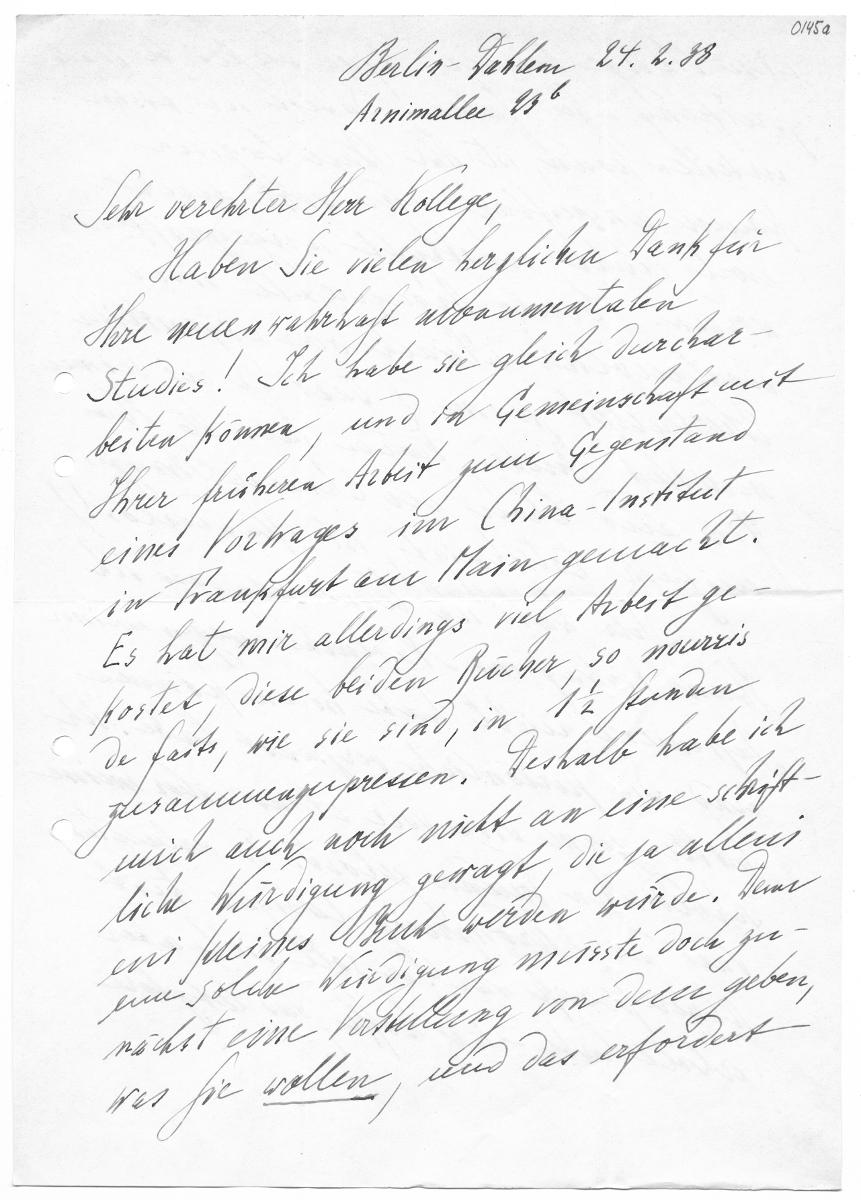 0145a
Berlin-Dahlem 24. 2. 38
Arnimallee 23b
Sehr verehrter Herr Kollege,
Haben Sie vielen herzlichen Dank für
Ihre neuen wahrhaft monumentalen
Studies! Ich habe sie gleich durchar-
beiten können, und in Gemeinschaft mit
Ihrer früheren Arbeit zum Gegenstand
eines Vortrages im China-Institut
in Frankfurt am Main gemacht.
Es hat mir allerdings viel Arbeit ge-
kostet, diese beiden Bücher, so nourris
de faits, wie sie sind, in 1½ Stunden
zusammenzupressen. Deshalb habe ich
mich auch noch nicht an eine schrift-
liche Würdigung gewagt, die ja allein
ein kleines Buch werden würde. Denn
eine solche Würdigung müsste doch zu-
nächst eine Vorstellung von dem geben,
was Sie wollen, und das erfordert